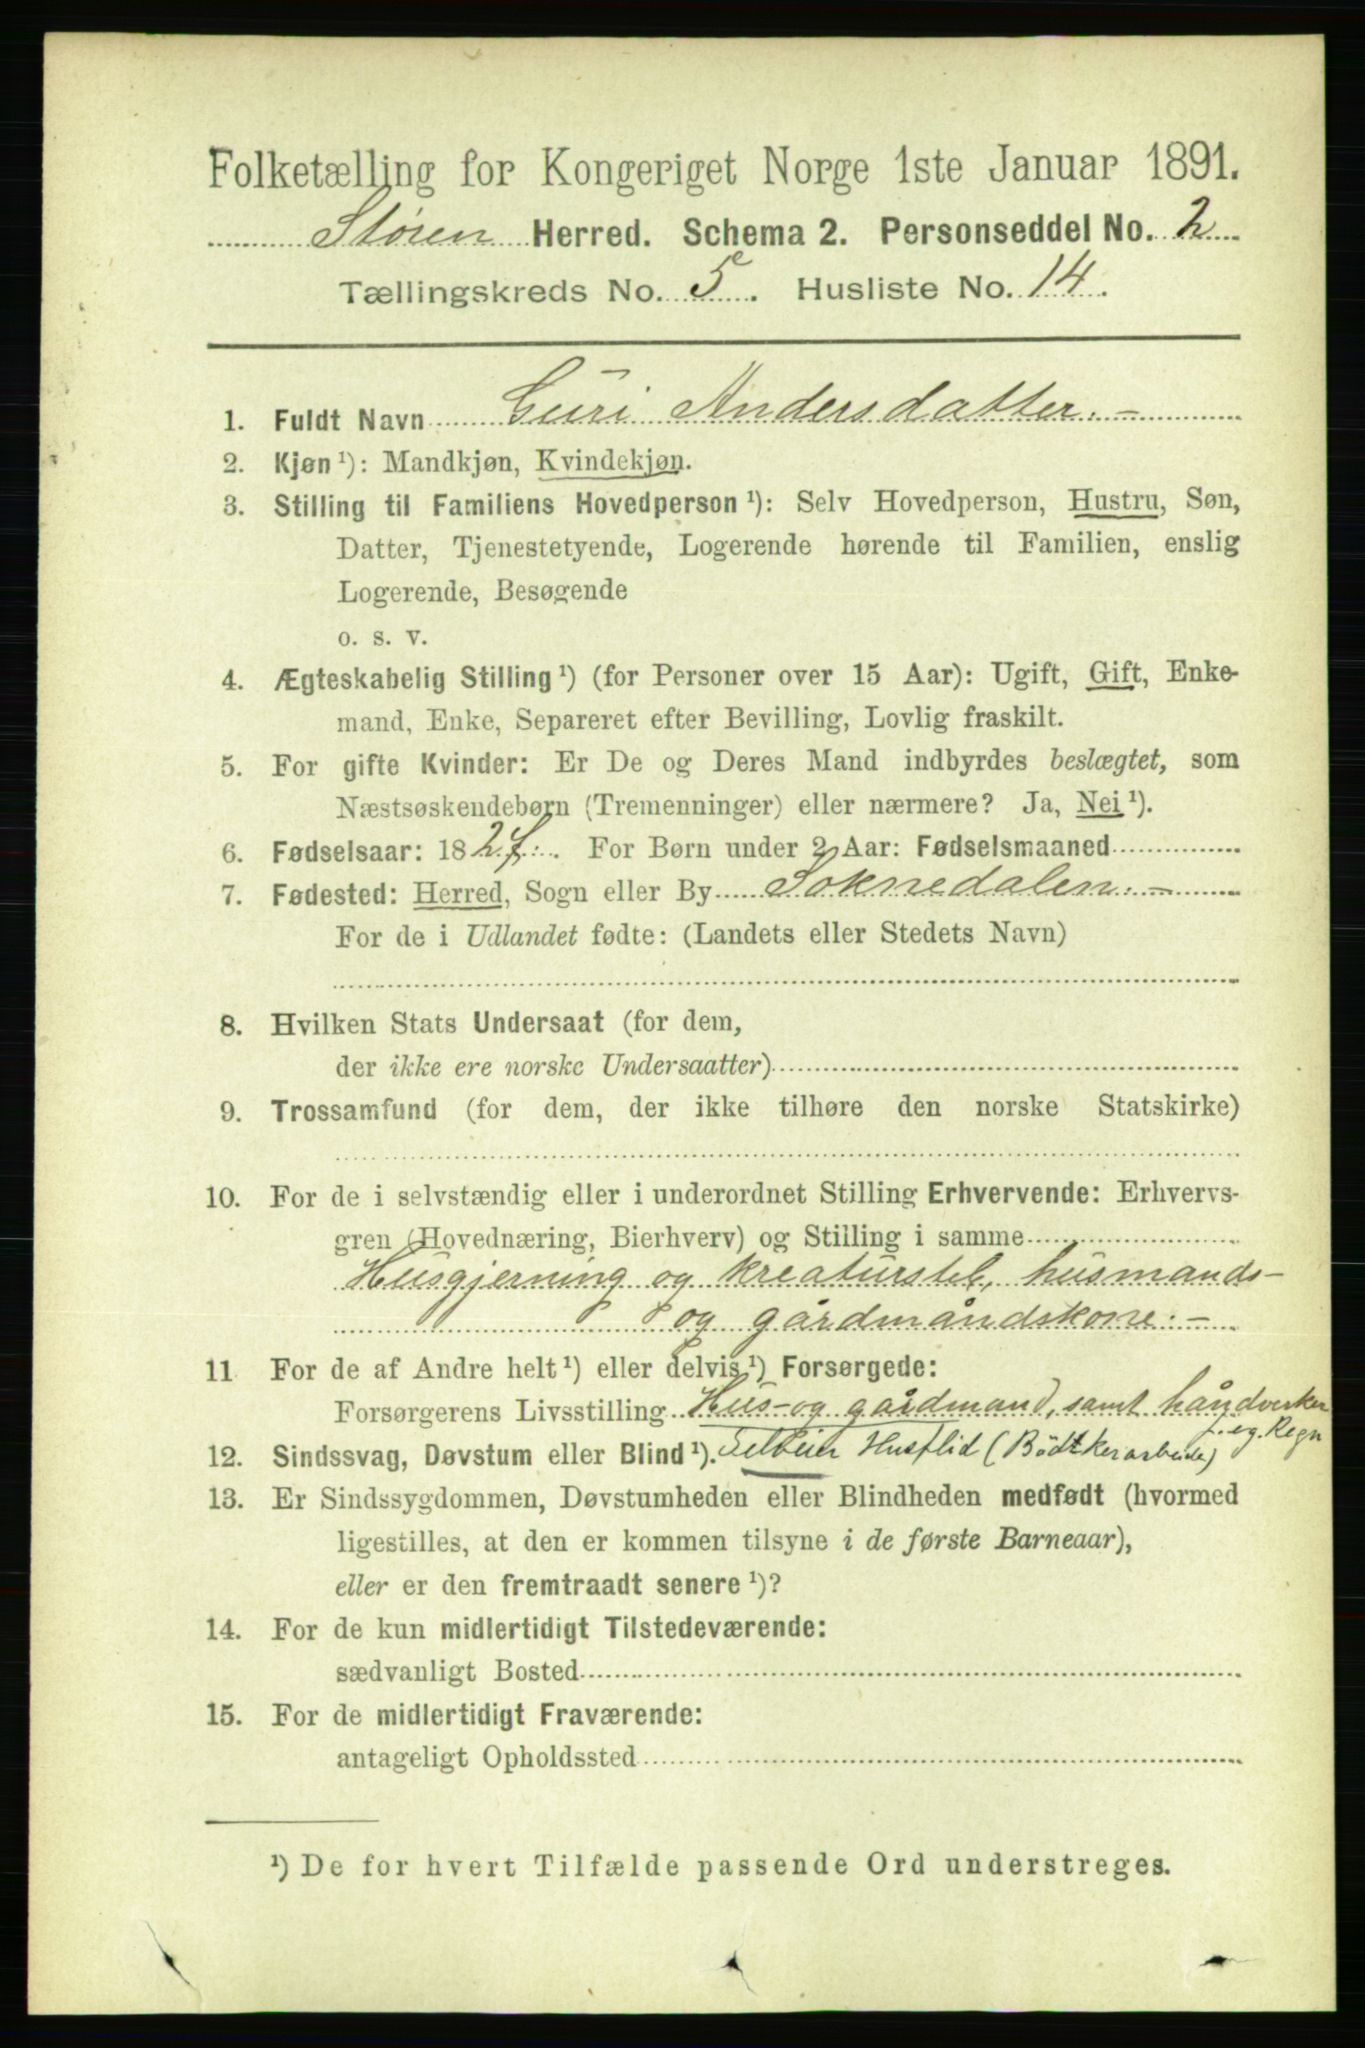 Folketælling for Kongeriget Norge 1ste Januar 1891.
Støren Herred. Schema 2. Personseddel No. 2
Tællingskreds No. 5. Husliste No. 14.
1. Fuldt Navn Guri Andersdatter. -
2. Kjøn ¹): Mandkjøn, Kvindekjøn.
3. Stilling til Familiens Hovedperson ¹): Selv Hovedperson, Hustru, Søn,
Datter, Tjenestetyende, Logerende hørende til Familien, enslig
Logerende, Besøgende
o. s. v.
4. Ægteskabelig Stilling ¹) (for Personer over 15 Aar): Ugift, Gift, Enke-
mand, Enke, Separeret efter Bevilling, Lovlig fraskilt.
5. For gifte Kvinder: Er De og Deres Mand indbyrdes beslægtet, som
Næstsøskendebørn (Tremenninger) eller nærmere? Ja, Nei ¹).
6. Fødselsaar: 182 . For Børn under 2 Aar: Fødselsmaaned
7. Fødested: Herred, Sogn eller By Soknedalen. -
For de i Udlandet fødte: (Landets eller Stedets Navn)
8. Hvilken Stats Undersaat (for dem,
der ikke ere norske Undersaatter)
9. Trossamfund (for dem, der ikke tilhøre den norske Statskirke)
10. For de i selvstændig eller i underordnet Stilling Erhvervende: Erhvervs-
gren (Hovednæring, Bierhverv) og Stilling i samme
Husgjerning og kreaturstel, husmands-
og gårdmåndskone. -
11 For de af Andre helt ¹) eller delvis ¹) Forsørgede:
Forsørgerens Livsstilling Hus- og gårdmand, samt håndverker
f. eg. Regn
12. Sindssvag, Døvstum eller Blind ¹). Husflid (Bödtkerarbeide)
13. Er Sindssygdommen, Døvstumheden eller Blindheden medfødt (hvormed
ligestilles, at den er kommen tilsyne i de første Barneaar),
eller er den fremtraadt senere ¹)?
14. For de kun midlertidigt Tilstedeværende:
sædvanligt Bosted
15. For de midlertidigt Fraværende:
antageligt Opholdssted
¹) De for hvert Tilfælde passende Ord understreges.